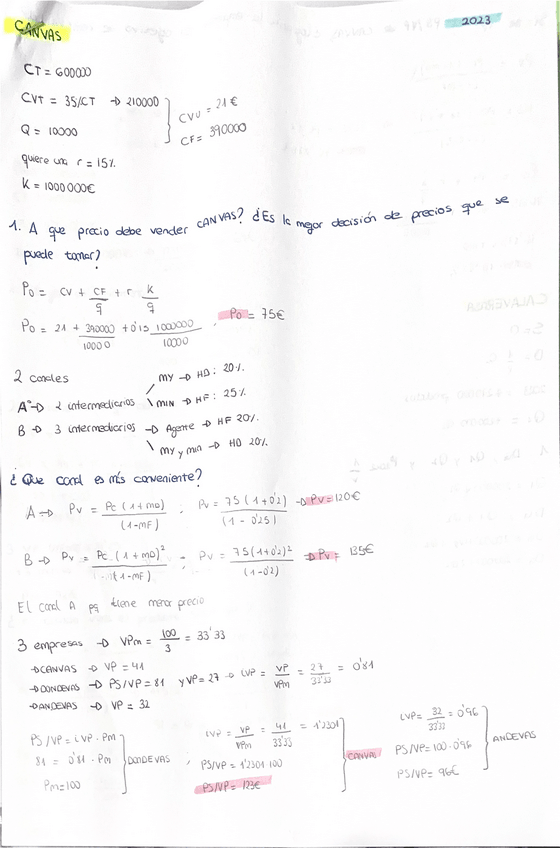 CANVAS
2023
CT = 600000
CVT = 35/CT → 210000
CVU = 21€
Q = 10000
CF = 390000
quiere una r = 15%
K = 1000 000€
1. A que precio debe vender CANVAS? ¿Es la mejor decisión de precios que se
puede tomar?
Po = CV + CF/q + r K/q
Po = 21 + 390000/10000 + 0'15 1000000/10000 , Po = 75€
2 canales
MY → HD: 20%
A → 2 intermediarios
MIN → HF: 25%
B → 3 intermediarios → Agente → HF 20%
MY y min → HD 20%
¿Que canal es más conveniente?
A → Pv = Pc (1+mD)/(1-MF) ; Pv = 75(1+0'2)/(1-0'25) → Pv = 120€
B → Pv = Pc.(1+mD)²/(1-MF) = Pv = 75(1+0'2)²/(1-0'2) → Pv = 135€
El canal A pq tiene menor precio
3 empresas → VPm = 100/3 = 33'33
→ CANVAS → VP = 41
→ DONDEVAS → PS/VP = 81 y VP = 27 → iVP = VP/VPm = 27/33'33 = 0'81
→ ANDEVAS → VP = 32
PS/VP = iVP · Pm
81 = 0'81 · Pm
Pm = 100
DONDEVAS
iVP = VP/VPm = 41/33'33 = 1'2301
PS/VP = 1'2301·100
PS/VP = 123€
CANVAS
iVP = 32/33'33 = 0'96
PS/VP = 100·0'96
PS/VP = 96€
ANDEVAS